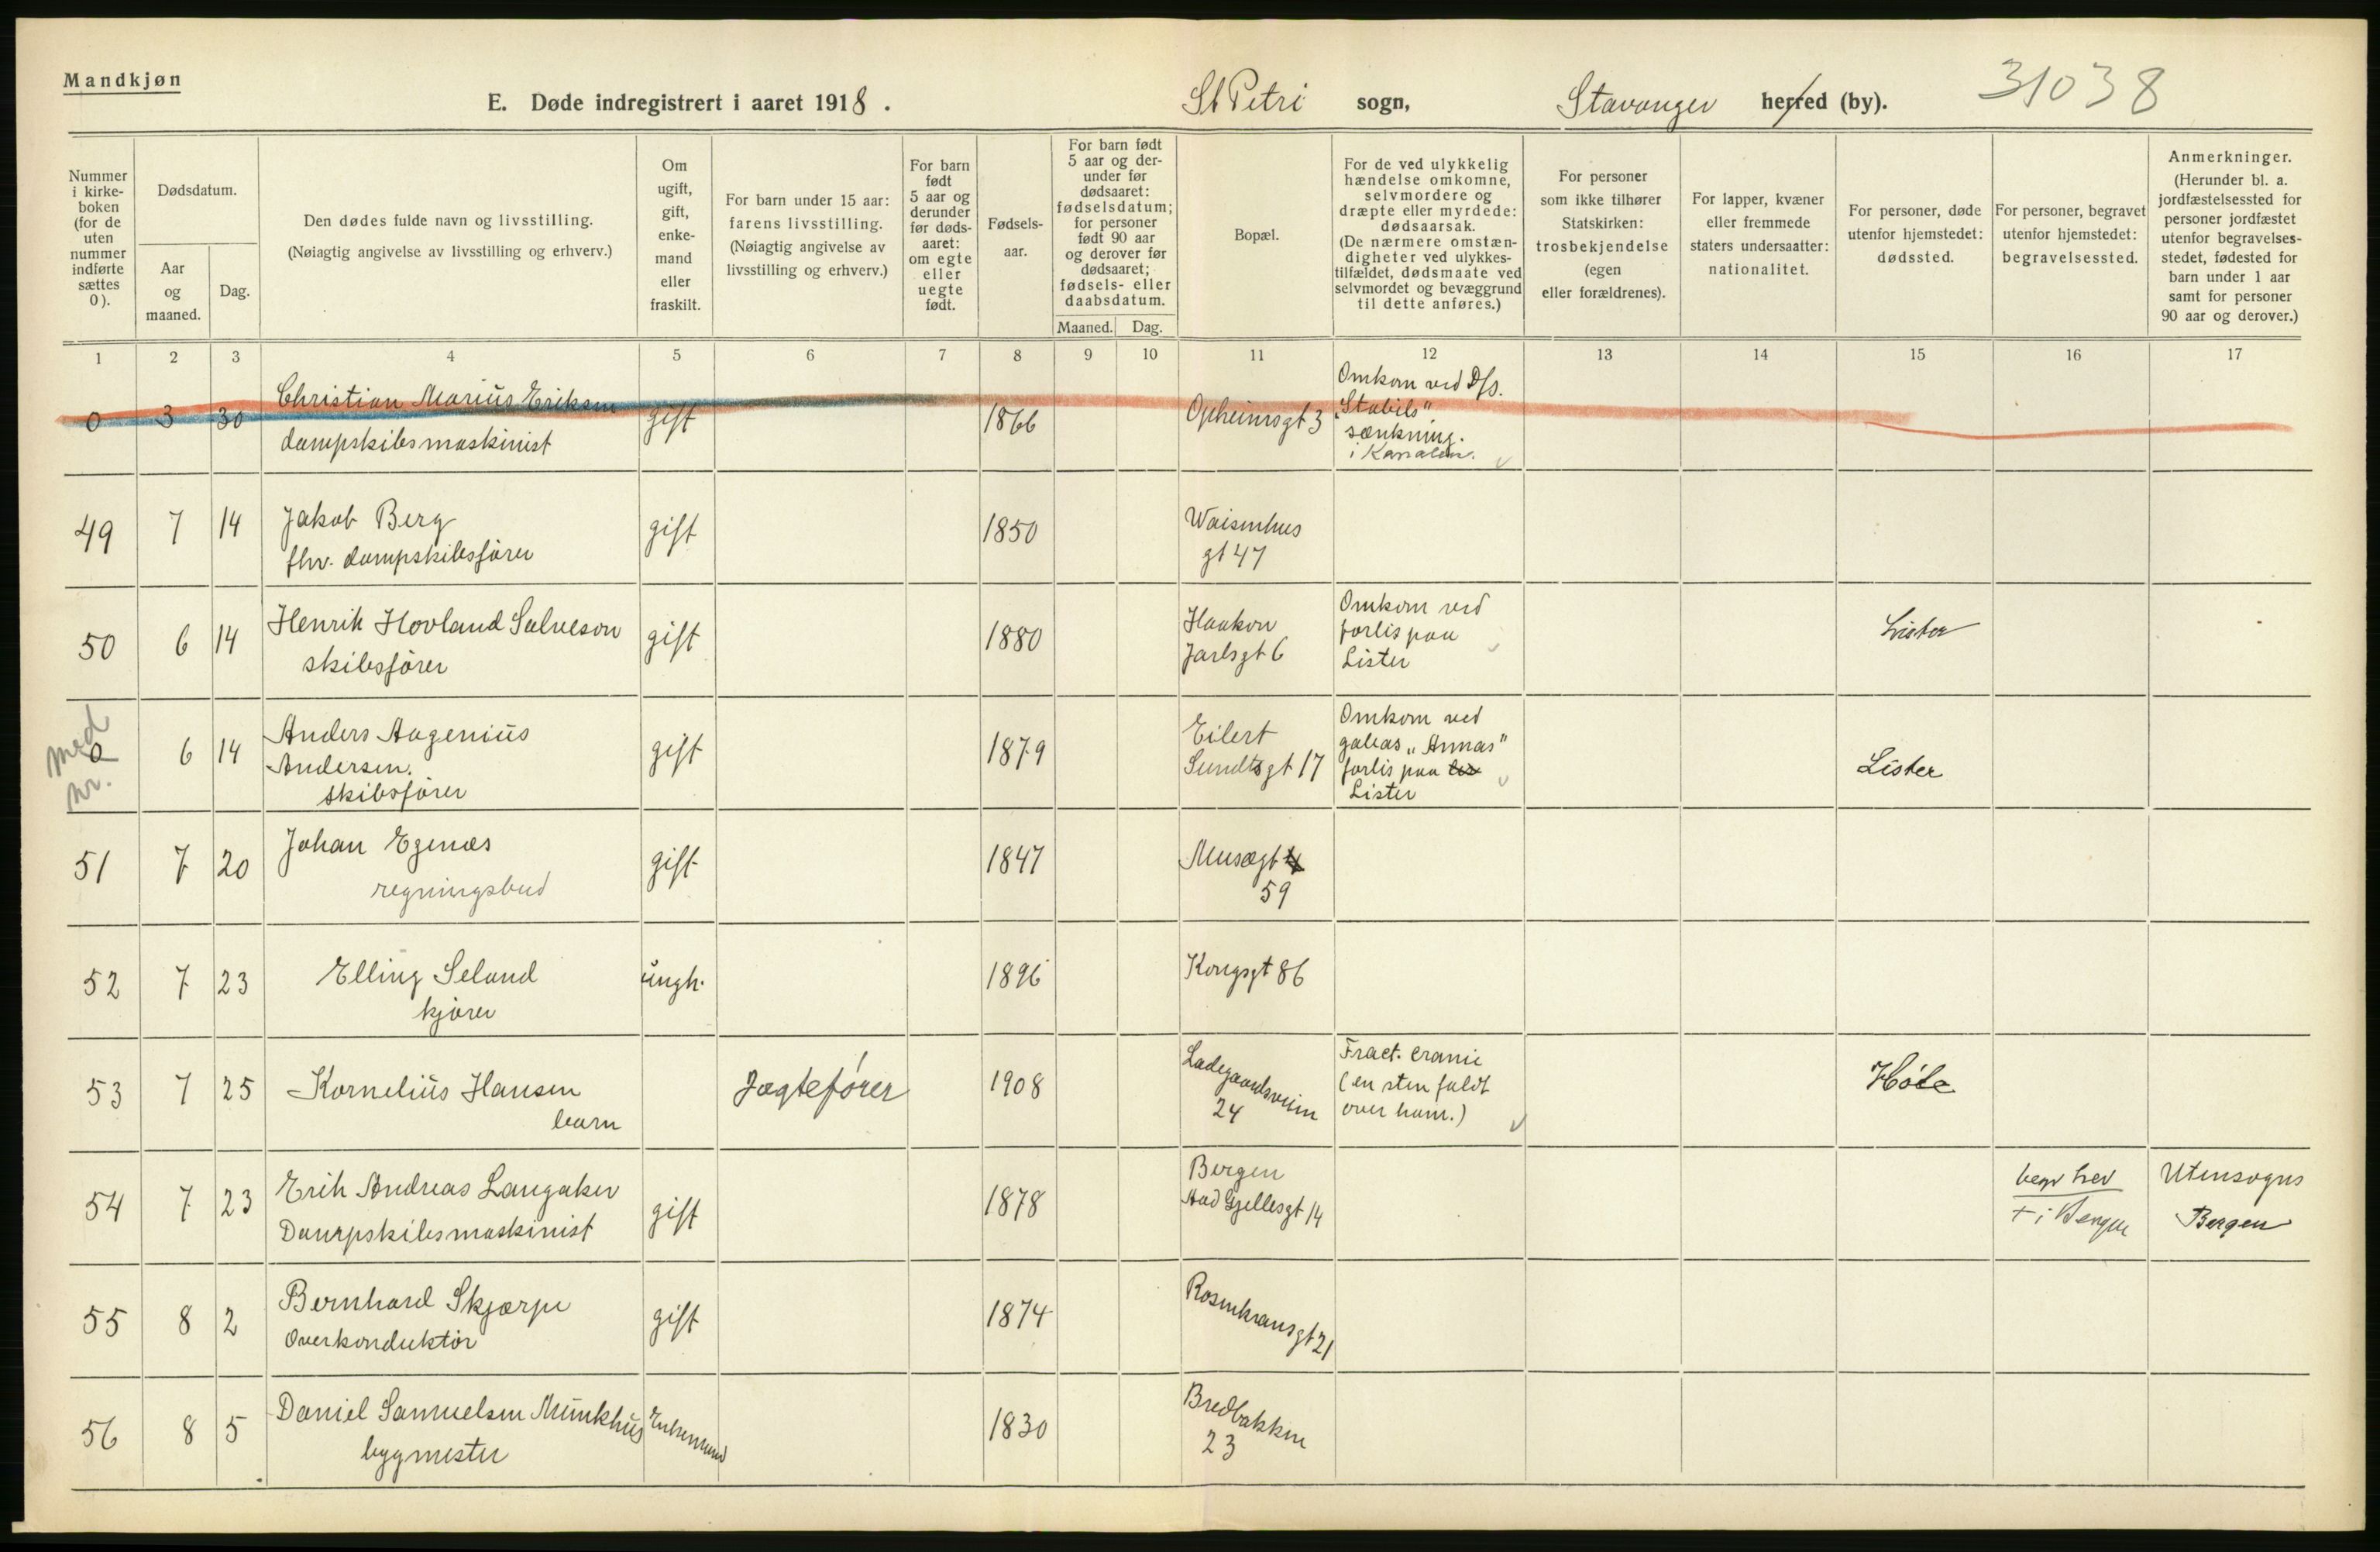 Mandkjøn
E. Døde indregistrert i aaret 1918. St Petri sogn, Stavanger herred (by). 31038
Nummer i kirke-boken (for de uten nummer indførte sættes 0).
Dødsdatum.
Aar og maaned.
Dag.
Den dødes fulde navn og livsstilling.
(Nøiagtig angivelse av livsstilling og erhverv.)
Om ugift, gift, enke-mand eller fraskilt.
For barn under 15 aar: farens livsstilling.
(Nøiagtig angivelse av livsstilling og erhverv.)
For barn født 5 aar og derunder før døds-aaret: om egte eller uegte født.
Fødsels-aar.
For barn født 5 aar og der-under før dødsaaret: fødselsdatum; for personer født 90 aar og derover før dødsaaret; fødsels- eller daabsdatum.
Maaned. Dag.
Bopæl.
For de ved ulykkelig hændelse omkomne, selvmordere og dræpte eller myrdede: dødsaarsak.
(De nærmere omstæn-digheter ved ulykkes-tilfældet, dødsmaate ved selvmordet og bevæggrund til dette anføres.)
For personer som ikke tilhører Statskirken: trosbekjendelse (egen eller forældrenes).
For lapper, kvæner eller fremmede staters undersaatter: nationalitet.
For personer, døde utenfor hjemstedet: dødssted.
For personer, begravet utenfor hjemstedet: begravelsessted.
Anmerkninger.
(Herunder bl. a. jordfæstelsessted for personer jordfæstet utenfor begravelses-stedet, fødested for barn under 1 aar samt for personer 90 aar og derover.)
1 2 3 4 5 6 7 8 9 10 11 12 13 14 15 16 17
0 3 30 Christian Marius Eriksen gift 1866 Opheimsgt 3 Omkom ved D/S.
dampskibsmaskinist „Stabils"
sænkning.
i Kanalen.
49 7 14 Jakob Berg gift 1850 Waisenhus
fhv. dampskibsfører gt 47
50 6 14 Henrik Hovland Salveson gift 1880 Haakon Omkom ved Lister
skibsfører Jarlsgt 6 forlis paa
Lister
med nr.
0 6 14 Anders Augenius gift 1879 Eilert Omkom ved Lister
Andersen. Sundtsgt 17 galeas „Annas"
skibsfører forlis paa
Lister
51 7 20 Johan Egenæs gift 1847 Musægt
regningsbud 59
52 7 23 Elling Seland ungk. 1896 Kongsgt 86
kjører
53 7 25 Kornelius Hansen Jagtefører 1908 Ladegaardsveien Fract. cranii Høle
barn 24 (en sten faldt
over ham.)
54 7 23 Erik Andreas Langaker gift 1878 Bergen begr her Utensogns
Dampskibsmaskinist Gjellesgt 14 + i Bergen Bergen
55 8 2 Bernhard Skjærpe gift 1874 Rosenkransgt 21
Overkonduktør
56 8 5 Daniel Samuelsen Munkhus Enkemand 1830 Bredbakken
bygmester 23